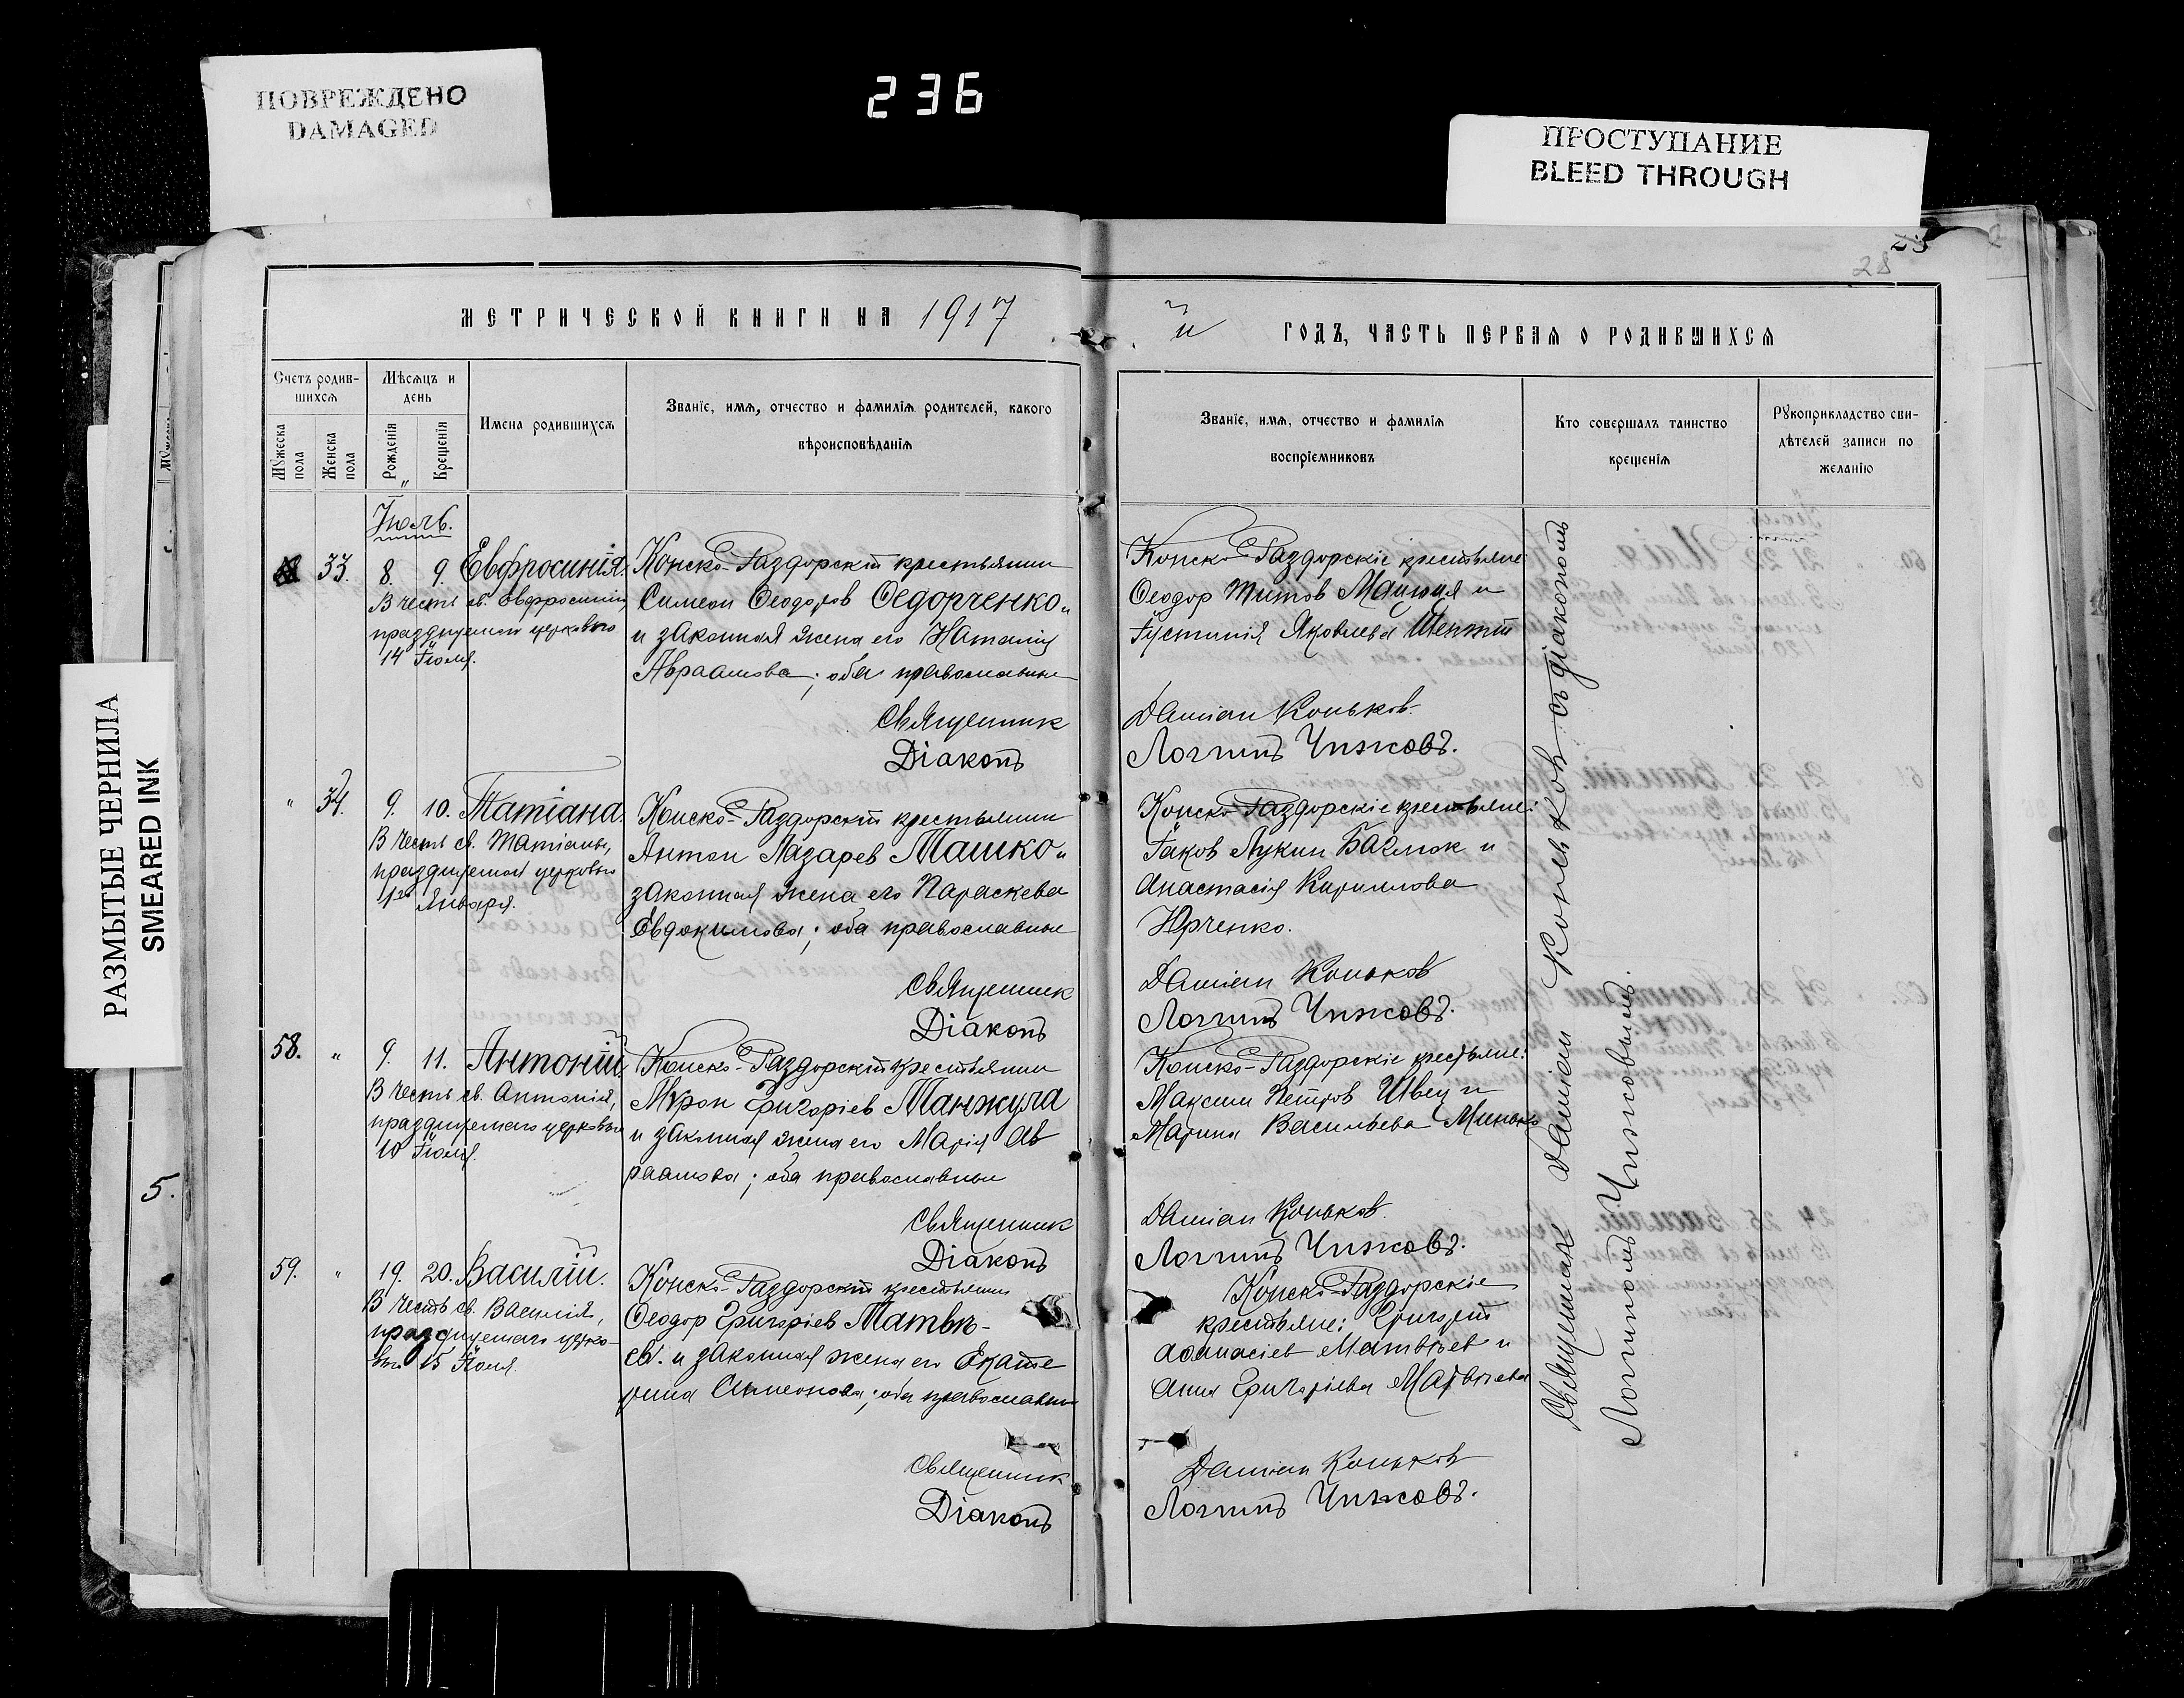 ПОВРЕЖДЕНО
DAMAGED
236
ПРОСТУПАНИЕ
BLEED THROUGH
РАЗМЫТЫЕ ЧЕРНИЛА
SMEARED INK
5.
28
МЕТРИЧЕСКОЙ КНИГИ НА 1917
Счетъ родив-
шихся
Мѣсяцъ и
день
Имена родившихся
Званіе, имя, отчество и фамилія родителей, какого
вѣроисповѣданія
Мужеска
пола
Женска
пола
Рожденія
Крещенія
Іюль.
33. 8. 9. Евфросинія.
В честь св. Евфросиніи,
празднуемой церковью
14 Іюля.
Конско-Раздорскій крестьянин
Симеон Ѳеодоров Ѳедорченко
и законная жена его Наталія
Авраамова; оба православные
Священник
Діаконъ
" 34. 9. 10. Татіана.
В честь св. Татіаны,
празднуемой церковью
Января.
Конско-Раздорскій крестьянин
Антон Лазарев Машко и
законная жена его Параскева
Евдокимова; оба православные
Священник
Діаконъ
58. " 9. 11. Антоній.
В честь св. Антонія,
празднуемаго церковью
10 Іюля.
Конско-Раздорскій крестьянин
Мѵрон Григоріев Манжула
и законная жена его Марія Ав
раамова; оба православные
Священник
Діаконъ
59. " 19. 20. Василій.
В честь св. Василія,
празднуемаго церко-
вью 15 Іюля.
Конско-Раздорскій крестьянин
Ѳеодор Григоріев Матвѣ-
ев. и законная жена его Екате
рина Симеонова; оба православные
Священник
Діаконъ
й ГОДЪ, ЧАСТЬ ПЕРВАЯ О РОДИВШИХСЯ
Званіе, имя, отчество и фамилія
воспріемниковъ
Кто совершалъ таинство
крещенія
Рукоприкладство сви-
дѣтелей записи по
желанію
Конско-Раздорскіе крестьяне:
Ѳеодор Титов и
Іустинія Яковлева
Даміан Коньков.
Логгинъ Чижовъ.
Конско-Раздорскіе крестьяне:
Іаков Лукин и
Анастасія Кириллова
Юрченко.
Даміан Коньков
Логгинъ Чижовъ.
Конско-Раздорскіе крестьяне:
Максим Петров Швец и
Марина Васильева Минько
Даміан Коньков.
Логгинъ Чижовъ.
Конско-Раздорскіе
крестьяне: Григорій
Аѳанасіев Матвѣев и
Анна Григоріева Матвѣева
Даміан Коньков
Логгинъ Чижовъ.
Священник Даміан Коньков съ діакономъ
Логгиномъ Чижовымъ.